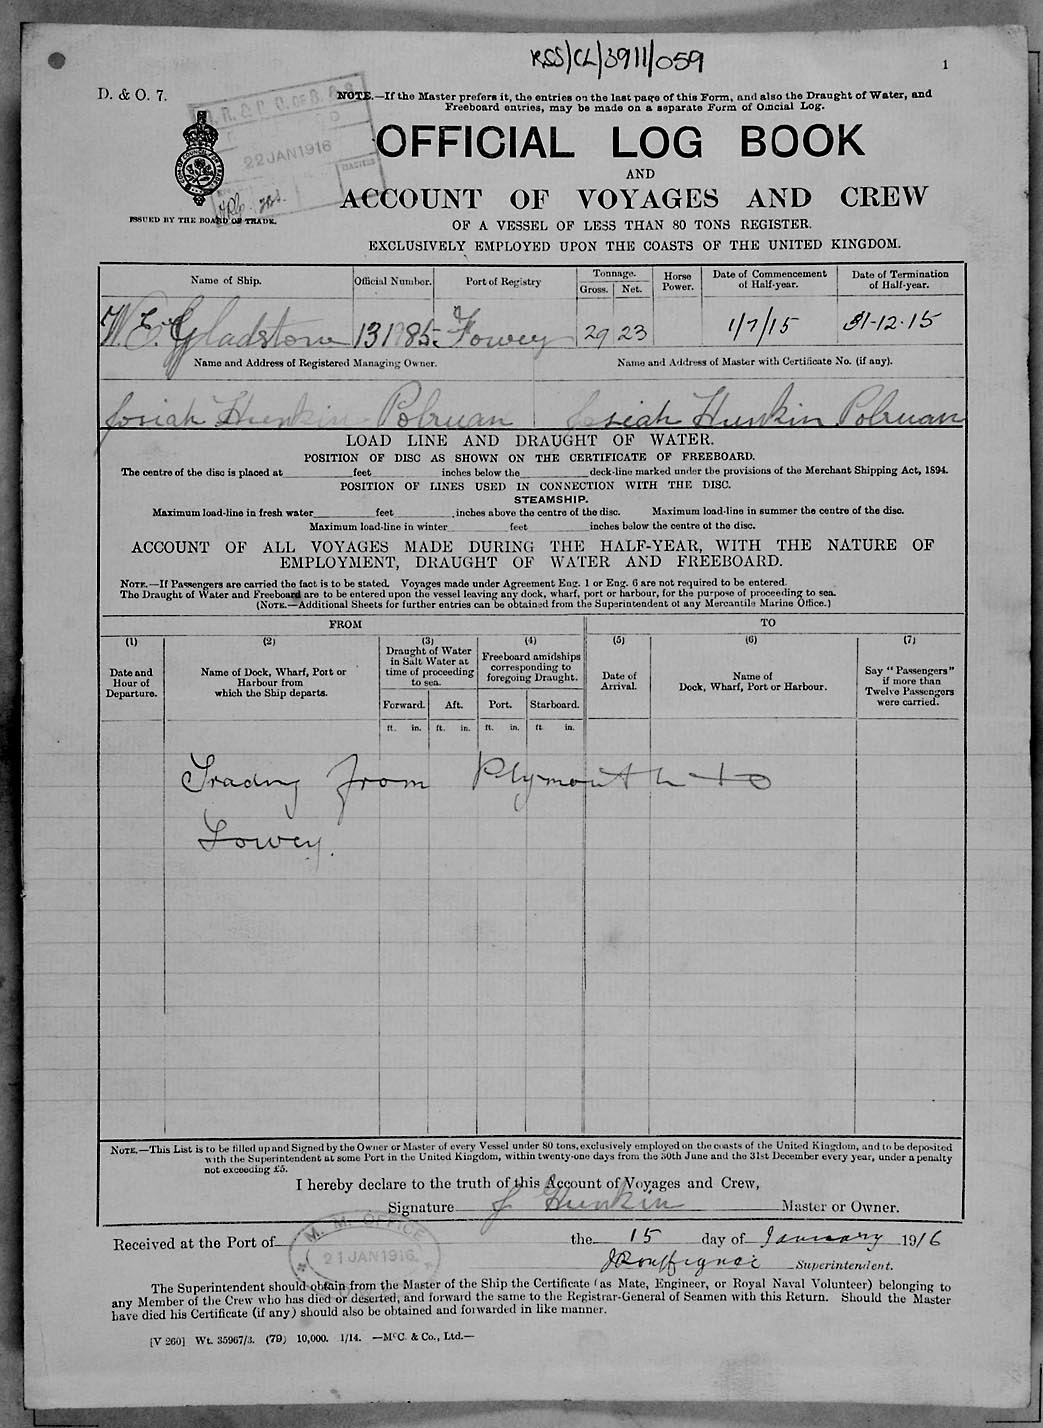 RSS/CL/3911/059
1
D. & O. 7.
NOTE.—If the Master prefers it, the entries on the last page of this Form, and also the Draught of Water, and
Freeboard entries, may be made on a separate Form of Official Log.
22 JAN 1916
OFFICIAL LOG BOOK
AND
ACCOUNT OF VOYAGES AND CREW
ISSUED BY THE BOARD OF TRADE.
OF A VESSEL OF LESS THAN 80 TONS REGISTER.
EXCLUSIVELY EMPLOYED UPON THE COASTS OF THE UNITED KINGDOM.
Name of Ship. Official Number. Port of Registry Tonnage. Gross. Net. Horse Power. Date of Commencement of Half-year. Date of Termination of Half-year.
W. E. Gladstone 131985 Fowey 29 23 1/7/15 31-12-15
Name and Address of Registered Managing Owner. Name and Address of Master with Certificate No. (if any).
Josiah Hunkin Polruan Josiah Hunkin Polruan
LOAD LINE AND DRAUGHT OF WATER.
POSITION OF DISC AS SHOWN ON THE CERTIFICATE OF FREEBOARD.
The centre of the disc is placed at feet inches below the deck-line marked under the provisions of the Merchant Shipping Act, 1894.
POSITION OF LINES USED IN CONNECTION WITH THE DISC.
STEAMSHIP.
Maximum load-line in fresh water feet inches above the centre of the disc. Maximum load-line in summer the centre of the disc.
Maximum load-line in winter feet inches below the centre of the disc.
ACCOUNT OF ALL VOYAGES MADE DURING THE HALF-YEAR, WITH THE NATURE OF
EMPLOYMENT, DRAUGHT OF WATER AND FREEBOARD.
NOTE.—If Passengers are carried the fact is to be stated. Voyages made under Agreement Eng. 1 or Eng. 6 are not required to be entered.
The Draught of Water and Freeboard are to be entered upon the vessel leaving any dock, wharf, port or harbour, for the purpose of proceeding to sea.
(NOTE.—Additional Sheets for further entries can be obtained from the Superintendent of any Mercantile Marine Office.)
FROM TO
(1) (2) (3) (4) (5) (6) (7)
Date and Hour of Departure. Name of Dock, Wharf, Port or Harbour from which the Ship departs. Draught of Water in Salt Water at time of proceeding to sea. Freeboard amidships corresponding to foregoing Draught. Date of Arrival. Name of Dock, Wharf, Port or Harbour. Say "Passengers" if more than Twelve Passengers were carried.
Forward. Aft. Port. Starboard.
ft. in. ft. in. ft. in. ft. in.
Trading from Plymouth to
Fowey.
NOTE.—This List is to be filled up and Signed by the Owner or Master of every Vessel under 80 tons, exclusively employed on the coasts of the United Kingdom, and to be deposited
with the Superintendent at some Port in the United Kingdom, within twenty-one days from the 30th June and the 31st December every year, under a penalty
not exceeding £5.
I hereby declare to the truth of this Account of Voyages and Crew,
Signature J Hunkin Master or Owner.
M. M. OFFICE
21 JAN 1916
Received at the Port of the 15 day of January 1916
Superintendent.
The Superintendent should obtain from the Master of the Ship the Certificate (as Mate, Engineer, or Royal Naval Volunteer) belonging to
any Member of the Crew who has died or deserted, and forward the same to the Registrar-General of Seamen with this Return. Should the Master
have died his Certificate (if any) should also be obtained and forwarded in like manner.
[V 260] Wt. 35967/3. (79) 10,000. 1/14. —McC. & Co., Ltd.—